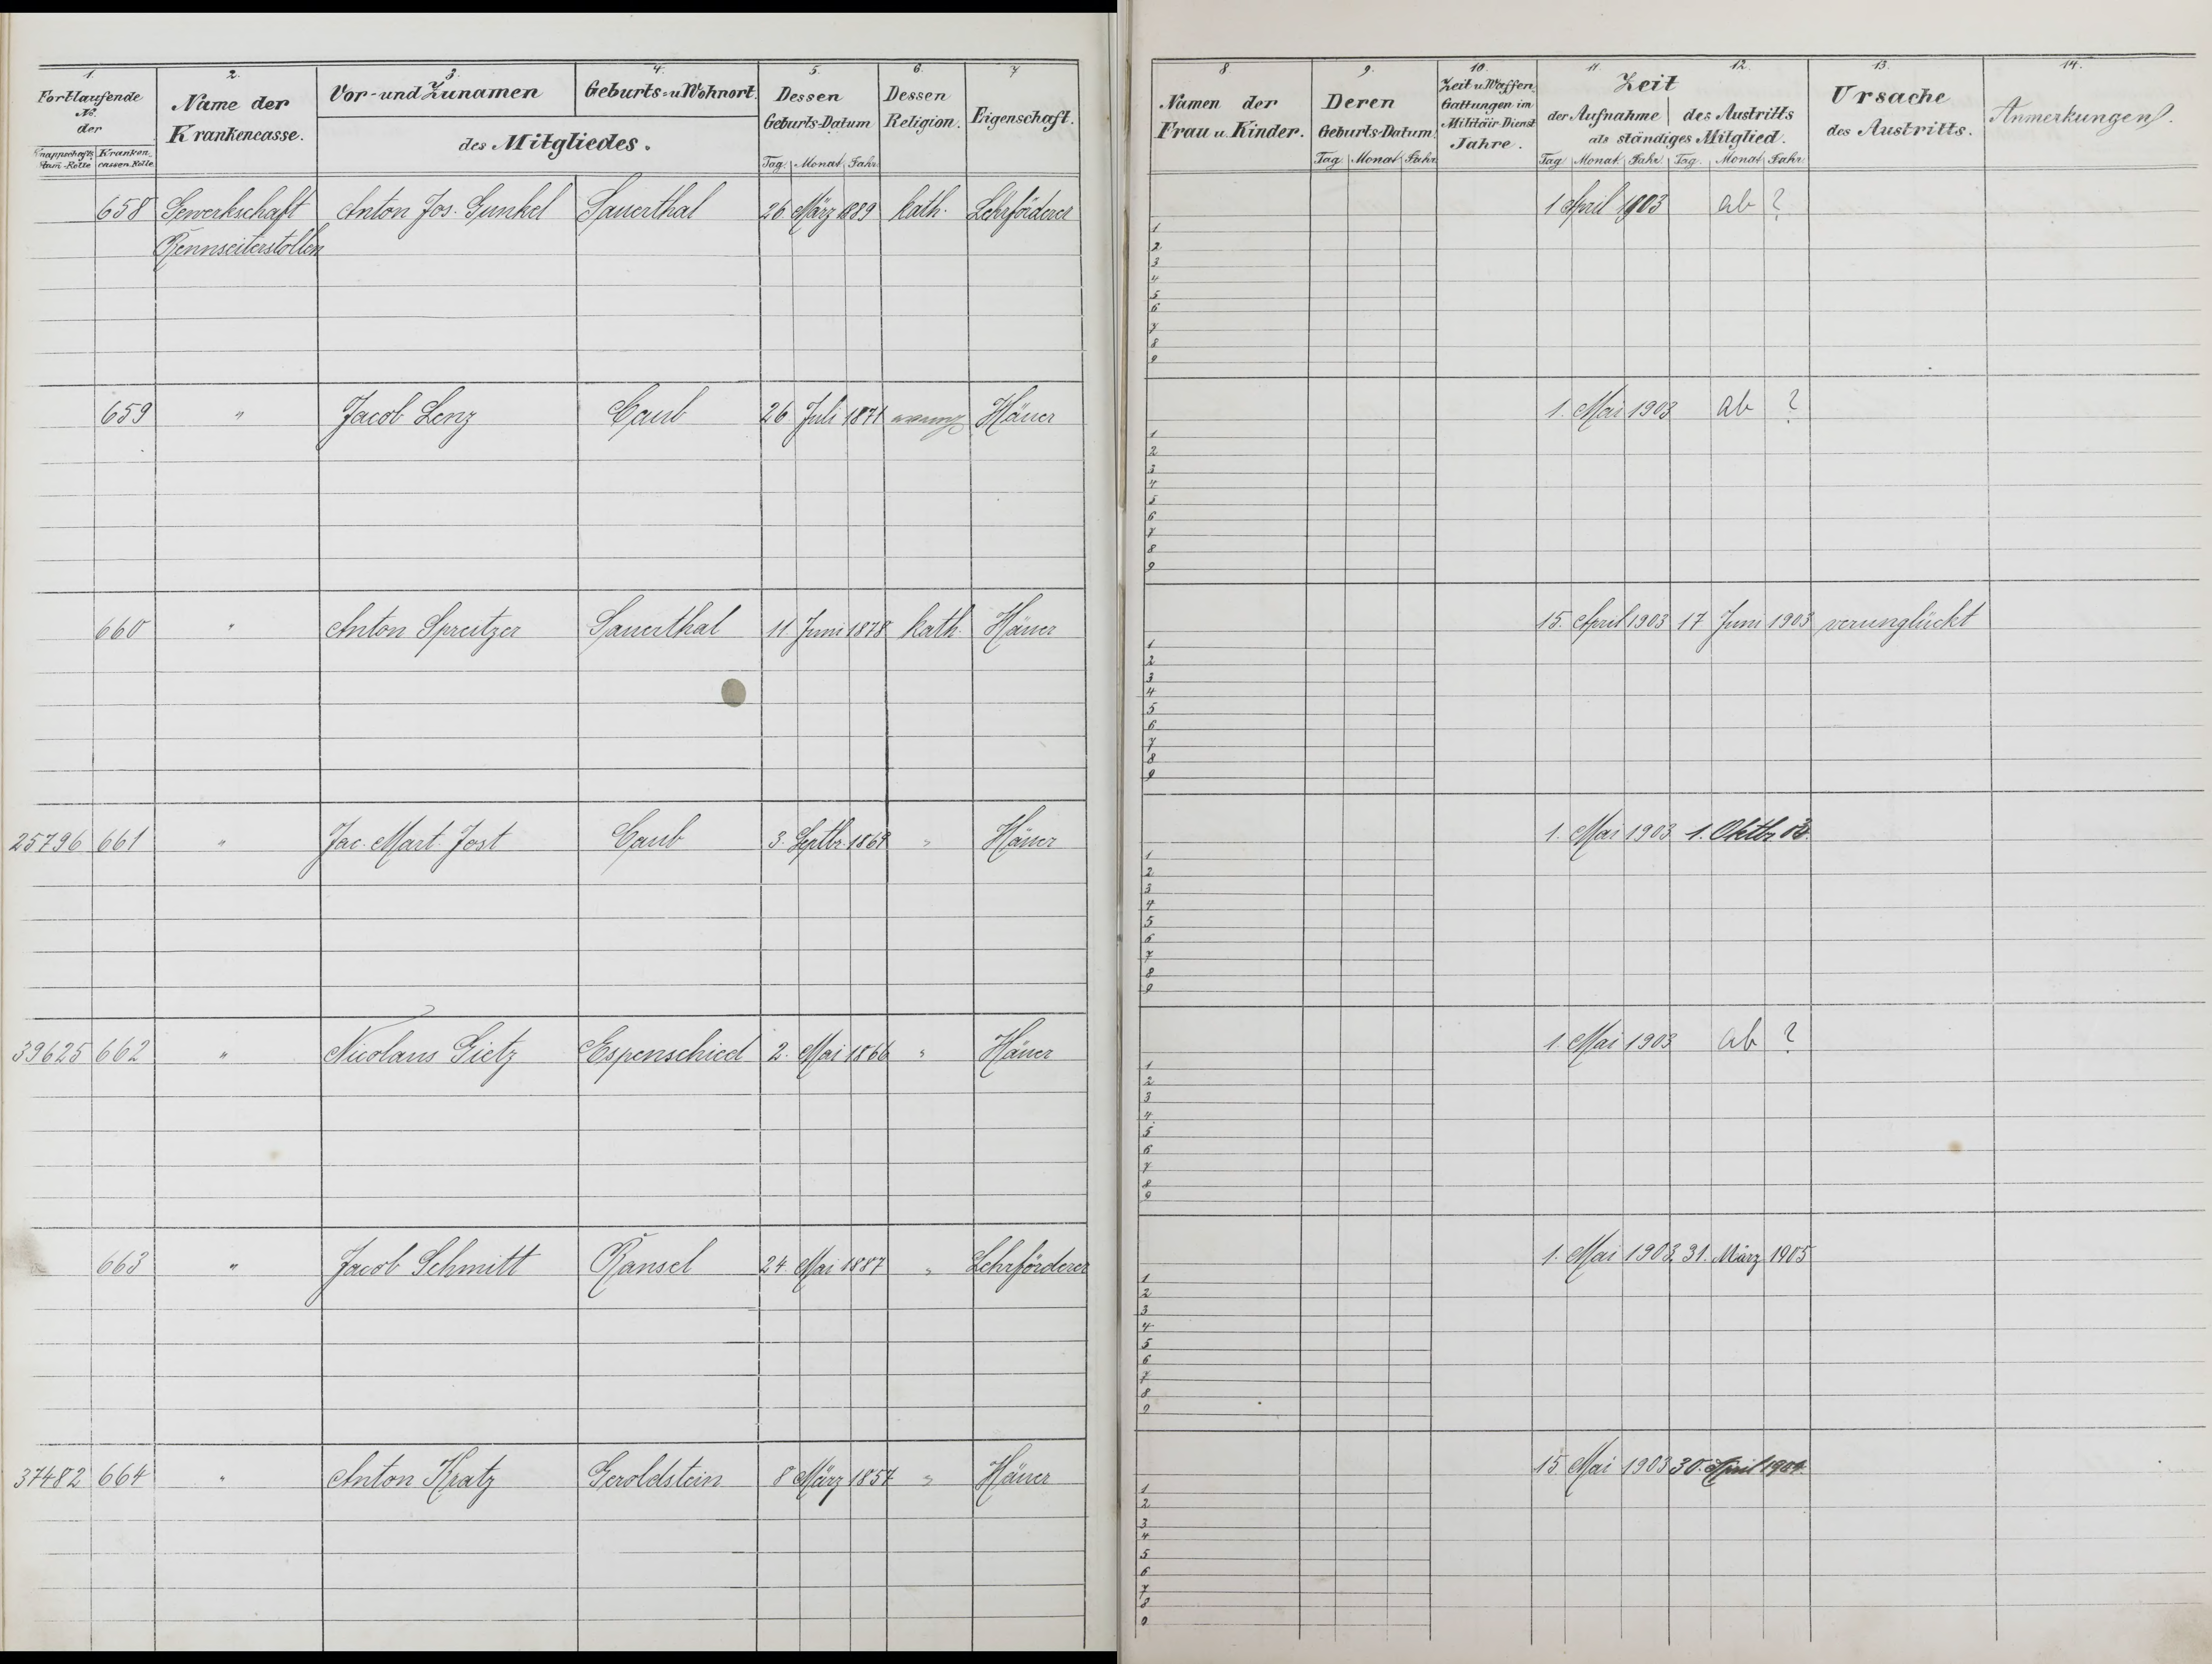 1. 2. 3. 4. 5. 6. 7 8. 9. 10. 11. 12. 13. 14.
Fortlaufende No. der
Knappschafts Stam-Rolle Kranken-cassen Rolle
Name der Krankencasse.
Vor- und Zunamen Geburts- u Wohnort
des Mitgliedes.
Dessen Geburts-Datum
Tag Monat Jahr
Dessen Religion.
Eigenschaft.
Namen der Frau u. Kinder.
Deren Geburts-Datum
Tag Monat Jahr
Zeit u Waffen Gattungen im Militair-Dienst Jahre.
Zeit
der Aufnahme des Austritts
als ständiges Mitglied.
Tag Monat Jahr Tag. Monat Jahr
Ursache des Austritts.
Anmerkungen.
658 Gewerkschaft Anton Jos. Gunkel Sauerthal 26 März 1889 kath. Lehrförderer 1 April 1903 ab ?
Rennseiterstollen
1
2
3
4
5
6
7
8
9
659 " Jacob Lenz Caub 26. Juli 1871 Häuer 1. Mai 1903 ab ?
1
2
3
4
5
6
7
8
9
660 " Anton Spreitzer Sauerthal 11 Juni 1878 kath. Häuer 15. April 1903 17 Juni 1903 verunglückt
1
2
3
4
5
6
7
8
9
25796 661 " Jac. Mart. Jost Caub 3. Septbr. 1869 " Häuer 1. Mai 1903 1. Oktbr. 03.
1
2
3
4
5
6
7
8
9
39625 662 " Nicolaus Gietz Espenschied 2. Mai 1866 " Häuer 1. Mai 1903 ab ?
1
2
3
4
5
6
7
8
9
663 " Jacob Schmitt Ransel 24. Mai 1887 " Lehrförderer 1. Mai 1903. 31. März 1905
1
2
3
4
5
6
7
8
9
37482 664 " Anton Kratz Geroldstein 8 März 1857 " Häuer 15. Mai 1903 30. April 1904.
1
2
3
4
5
6
7
8
9